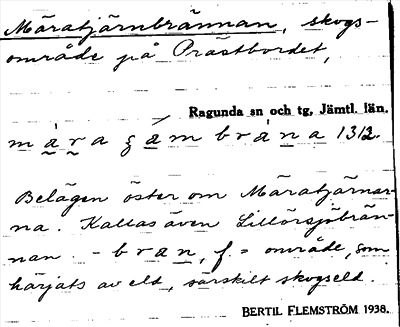 Märatjärnbrännan, skogs-
område på Prästbordet,
Ragunda sn och tg, Jämtl. län.
Belägen öster om Märatjärnar-
na. Kallas även Lillörsjöbrän-
nan - bran, f. = område, som
härjats av eld, särskilt skogseld.
BERTIL FLEMSTRÖM 1938.